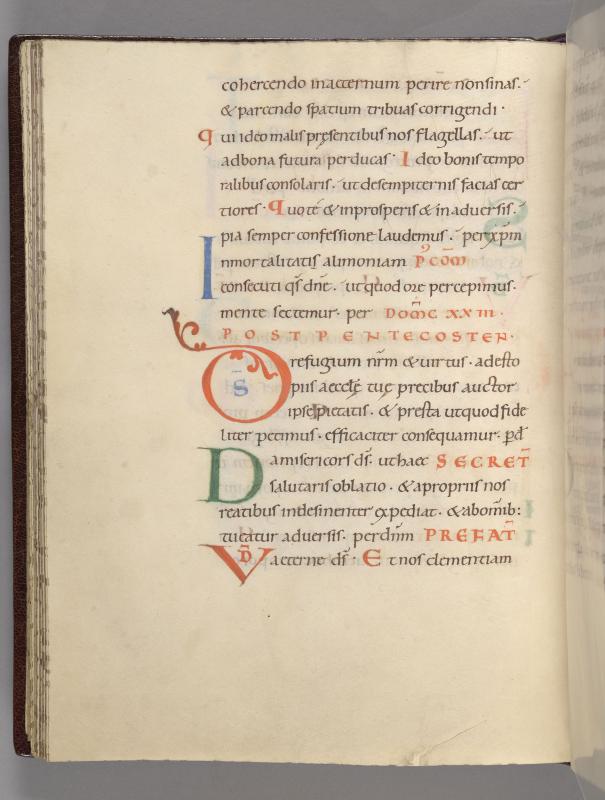 cohercendo inaeternum perire nonsinas.
& parcendo spatium tribuas corrigendi ·
qui ideo malis presentibus nos flagellas. ut
adbona futura perducas · Ideo bonis tempo
ralibus consolaris. ut desempiternis facias cer
tiores · quo te & inprosperis & in aduersis.
pia semper confessione laudemus. per xpm
Inmortalitatis alimoniam Pᵒ CŌM
consecuti qs dne. ut quod ore percepimus.
mente sectemur. per DOMC XXIII.
POST PENTECOSTEN.
DS refugium nrm & uirtus · adesto
piis aeccle tue precibus auctor
ipse pietatis. & presta ut quod fide
liter petimus. efficaciter consequamur. pd
Da misericors ds. ut haec SECRET
salutaris oblatio. & apropriis nos
reatibus indesinenter expediat. & abomib:
tueatur aduersis. per dnm PREFAT
VD aeterne ds. Et nos clementiam